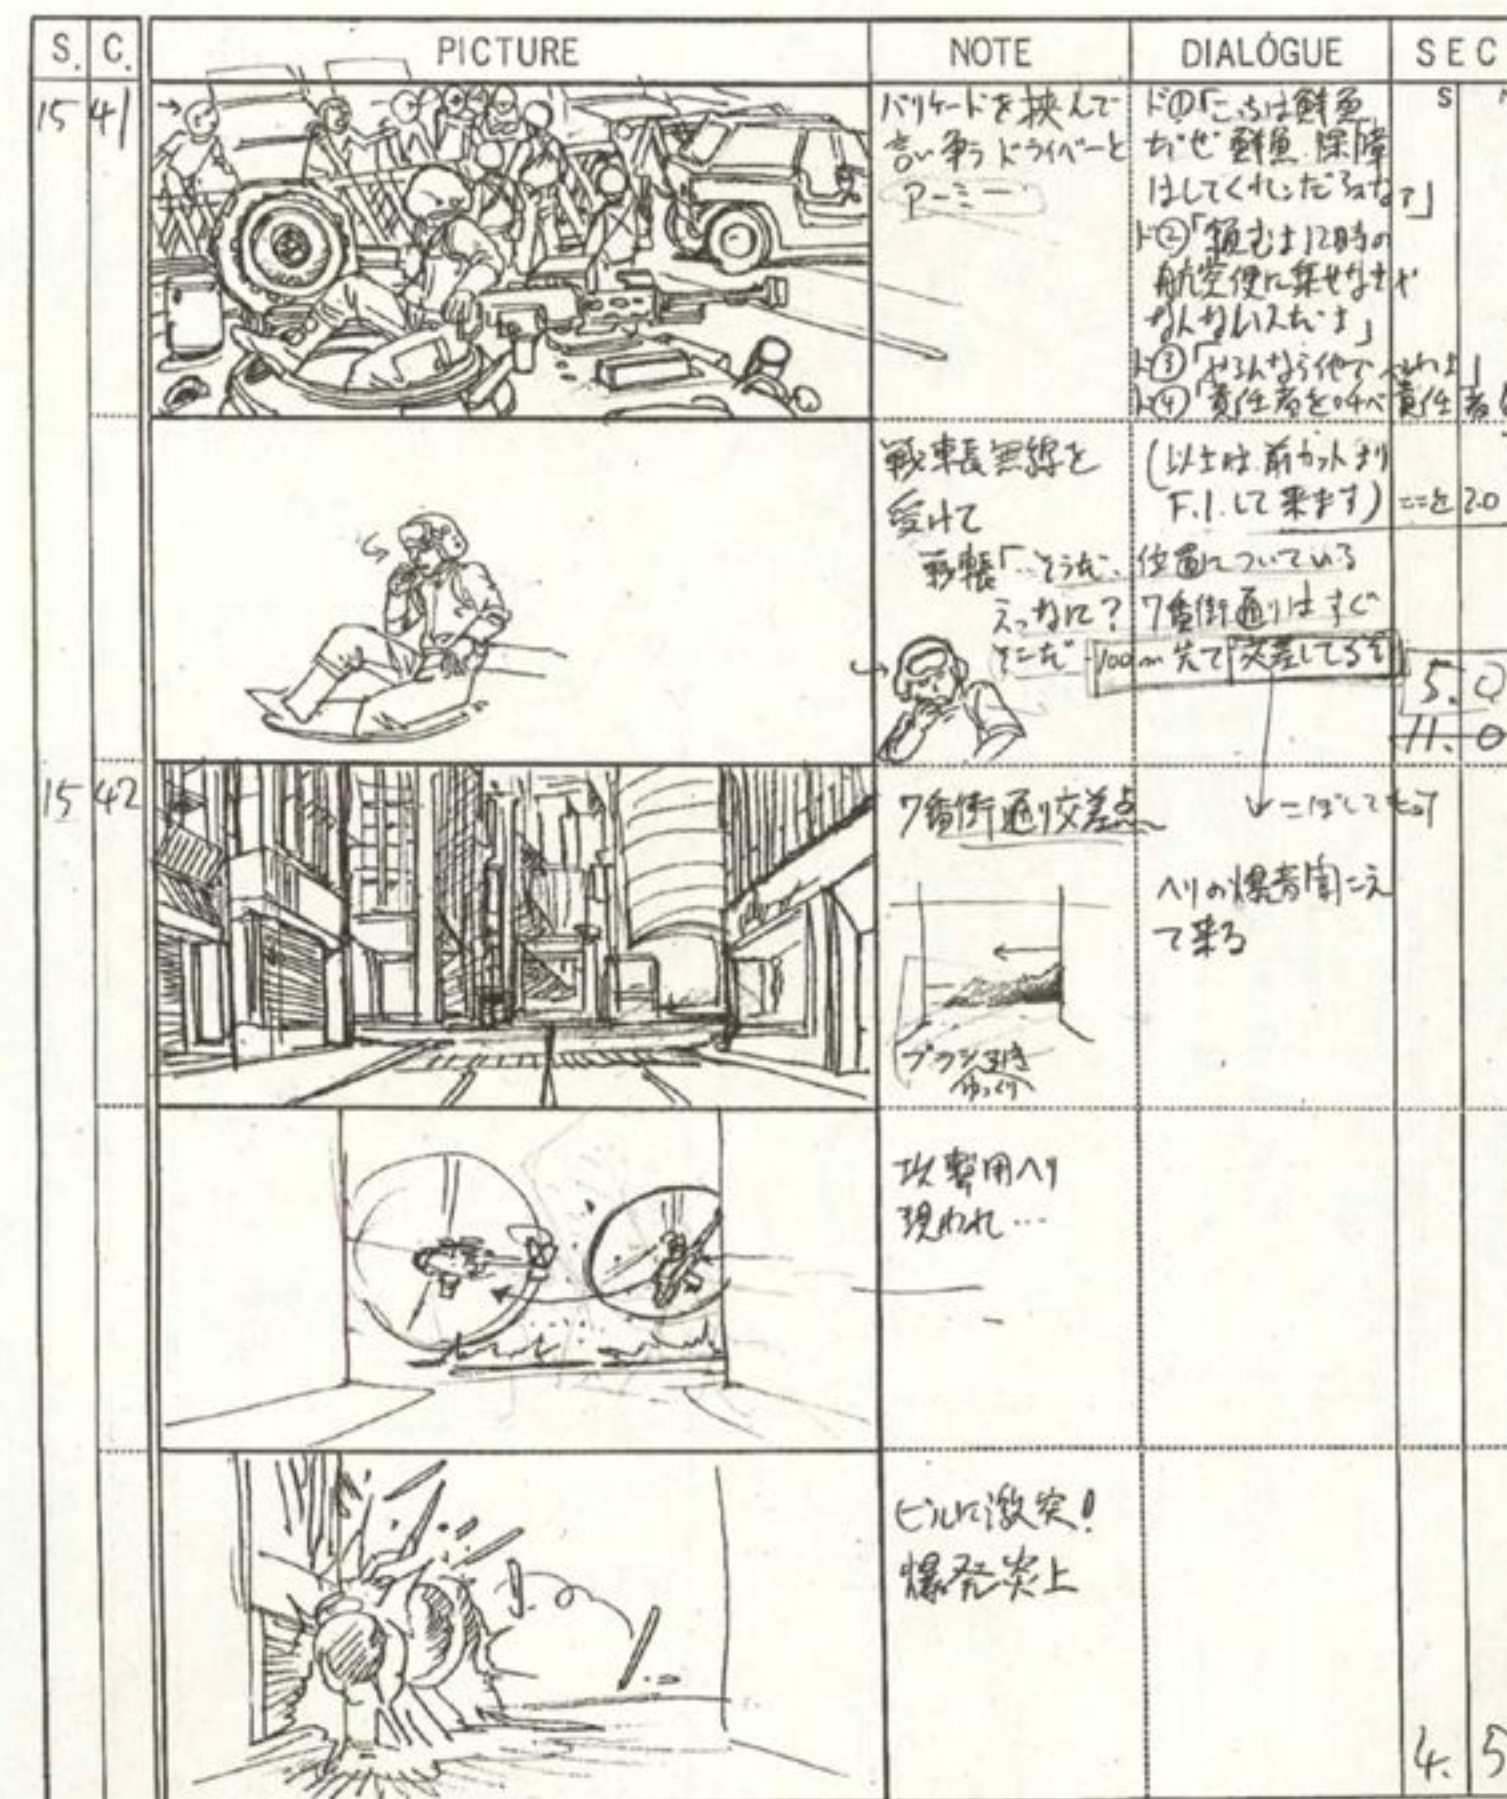 S.
C.
PICTURE
NOTE
DIALOGUE
SEC
15
41
バリケードを挟んで
言い争うドライバーと
アーミー
ド①「こっちは鮮魚
だぜ鮮魚.保障
はしてくれんだろうなァ」
ド②「頼むよ12時の
航空便に乗せなきゃ
なんないんだよ」
ド③
ド④「責任者を呼べ責任者
S
戦車長無線を
受けて
戦車長「…そうだ、位置についている
えっなに?7番街通りはすぐ
そこだ 100m先で交差してる
(以上は、前カットより
F.I.して来ます)ここを2.0
5.0
11.0
15
42
7番街通り交差点
ブラシ引き
ゆっくり
こぼして
ヘリの爆音聞こえ
て来る
攻撃用ヘリ
現われ…
ビルに激突!
爆発炎上
4.5